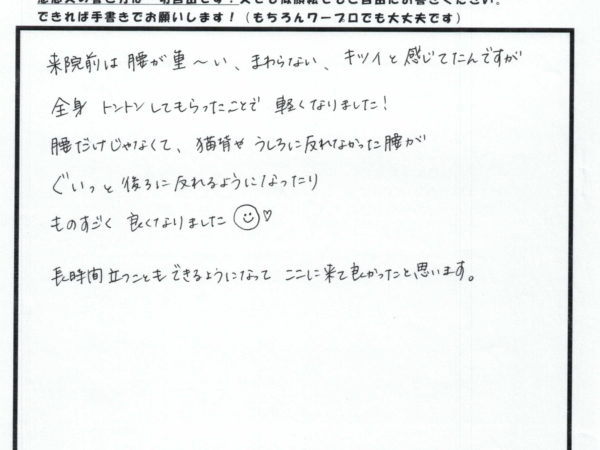 できれば手書きでお願いします！（もちろんワープロでも大丈夫です）
来院前は腰が重〜い、まわらない、キツイと感じてたんですが
全身トントンしてもらったことで 軽くなりました！
腰だけじゃなくて、猫背や うしろに反れなかった腰が
ぐいっと後ろに反れるようになったり
ものすごく 良くなりました
長時間立つこともできるようになって ここに来て良かったと思います。